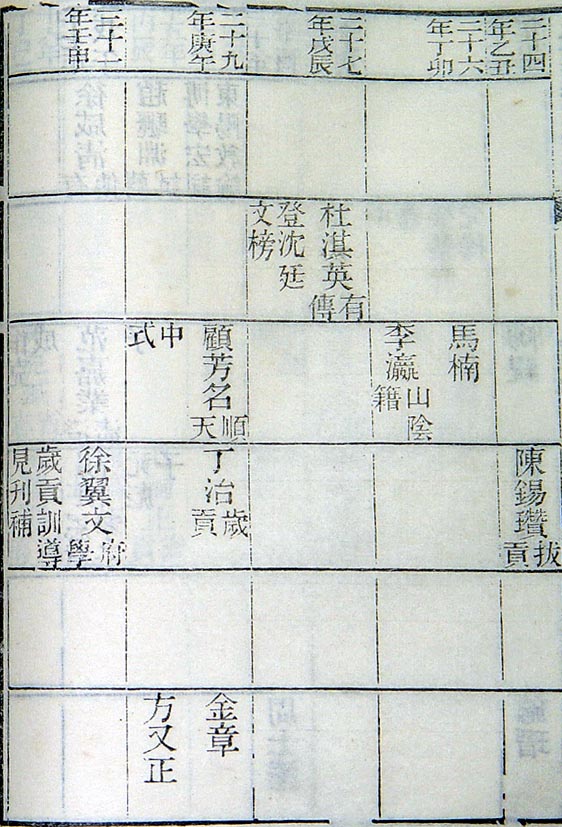 二十四
年乙丑
陳錫瓚拔
貢
二十六
年丁卯
馬楠
李瀛山陰
籍
二十七
年戊辰
杜淇英有
傳
登沈廷
文榜
二十九
年庚午
顧芳名順
天
中
式
丁治歲
貢
金章
方又正
三十一
年壬申
徐翼文府
學
歲貢訓導
見刊補